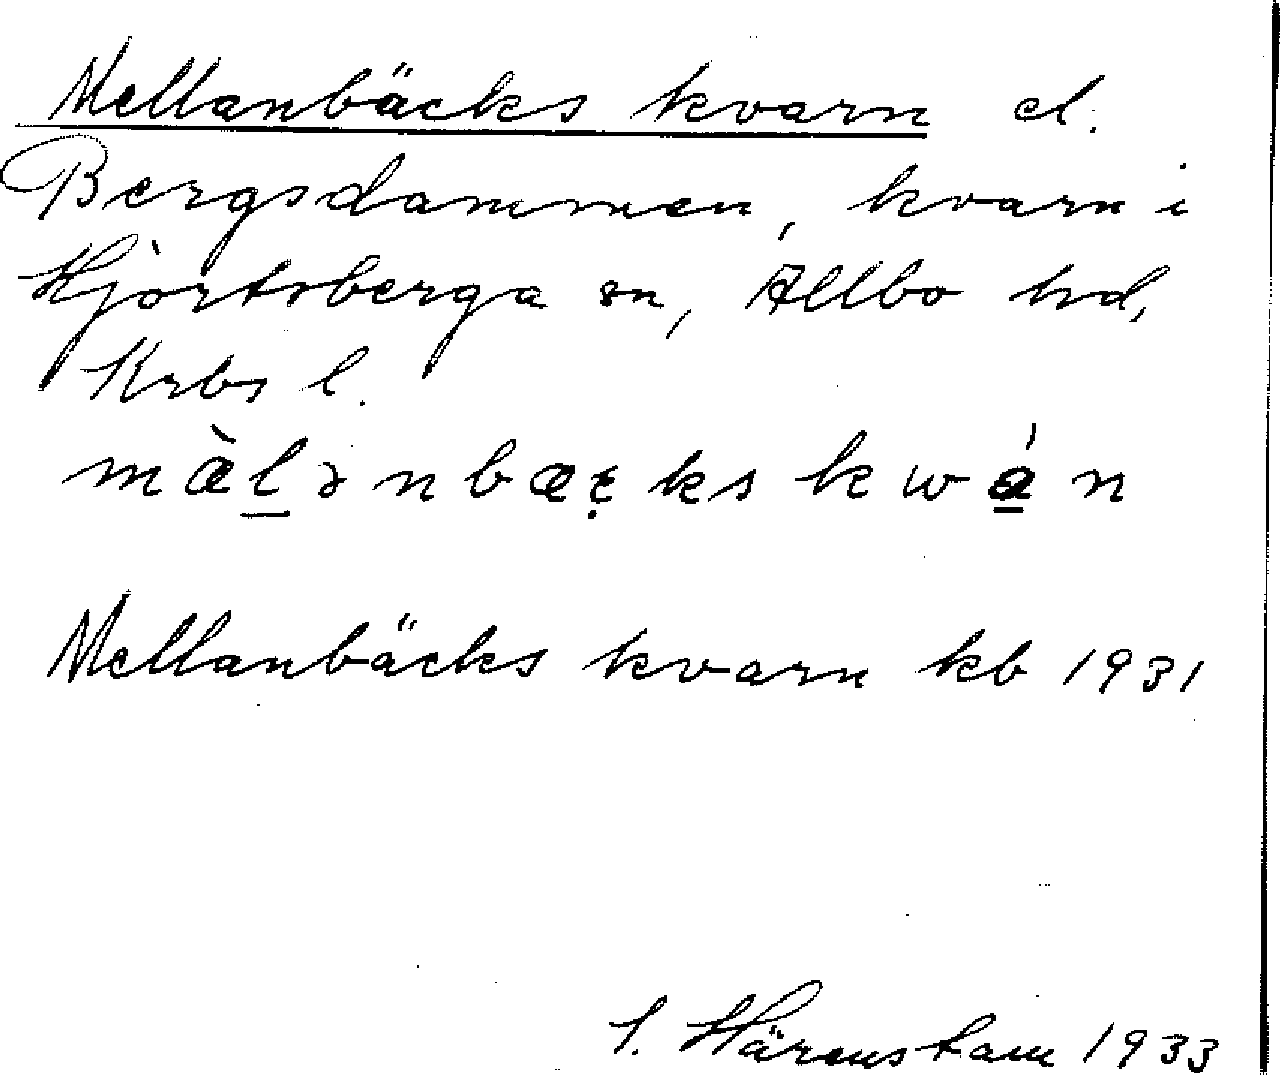 Mellanbäcks kvarn el.
Bergsdammen, kvarn i
Hjortsberga sn, Allbo hd,
Krbs l.
mæ̀l̲ənbæɛ̣ks kwá̲n
Mellanbäcks kvarn kb 1931
S. Härenstam 1933